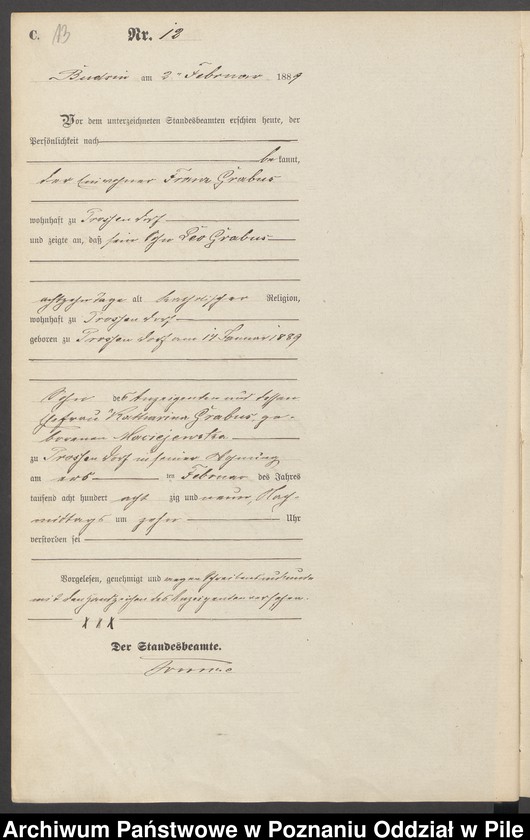 C. 13 Nr. 12
Budsin am 2. Februar 1889
Vor dem unterzeichneten Standesbeamten erschien heute, der
Persönlichkeit nach
be kannt,
der Einwohner Franz Grabus
wohnhaft zu
und zeigte an, daß sein Sohn Leo Grabus
achtzehn Tage alt katholischer Religion,
wohnhaft zu
geboren zu am 14 Januar 1889
Sohn des Anzeigenden und dessen
Ehefrau Katharina Grabus ge-
borenen Maciejewska
zu in seiner Wohnung
am ers ten Februar des Jahres
tausend acht hundert acht zig und neun, Nach-
mittags um zehn Uhr
verstorben sei
Vorgelesen, genehmigt und wegen Schreibensunkunde
mit den Handzeichen des Anzeigenden versehen.
X X X
Der Standesbeamte.